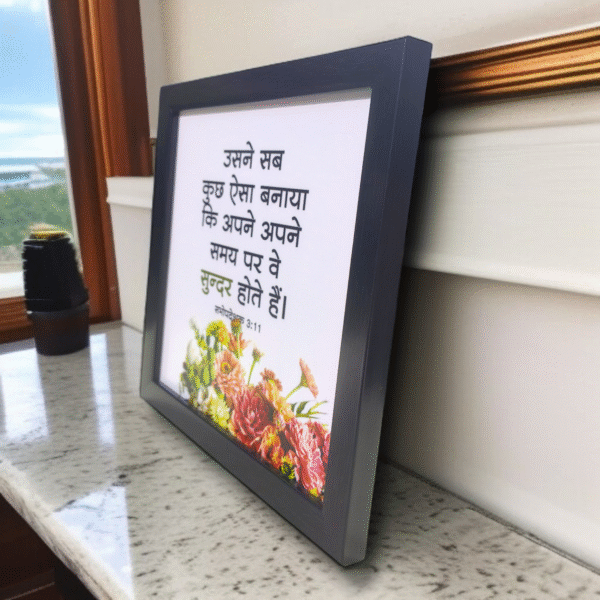 उसने सब
कुछ ऐसा बनाया
कि अपने अपने
समय पर वे
सुन्दर होते हैं।
सभोपदेशक 3:11